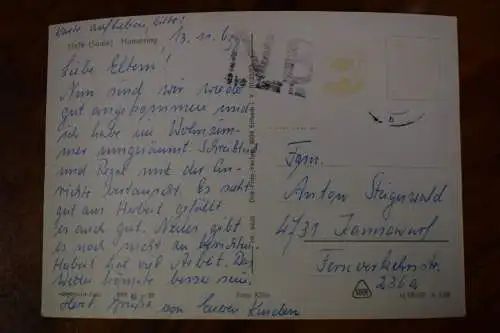 Karte aufheben, bitte!
Halle (Saale) Hansering
13. 11. 69
Liebe Eltern!
Nun sind wir wieder
gut angekommen und
ich habe im Wohnzim-
mer umgeräumt. Schreibtisch
und Regal mit der An-
richte vertauscht. Es sieht
gut aus Herbert gefällt
es auch gut. Neues gibt
es noch nicht zu berichten.
Herbert hat viel Arbeit. Das
Wetter könnte besser sein.
Herzl. Grüße von Euren Kindern
Fam.
Anton Steigerwald
4731 Kannawurf
Fernverkehrsstr.
236a
Foto: Kühn